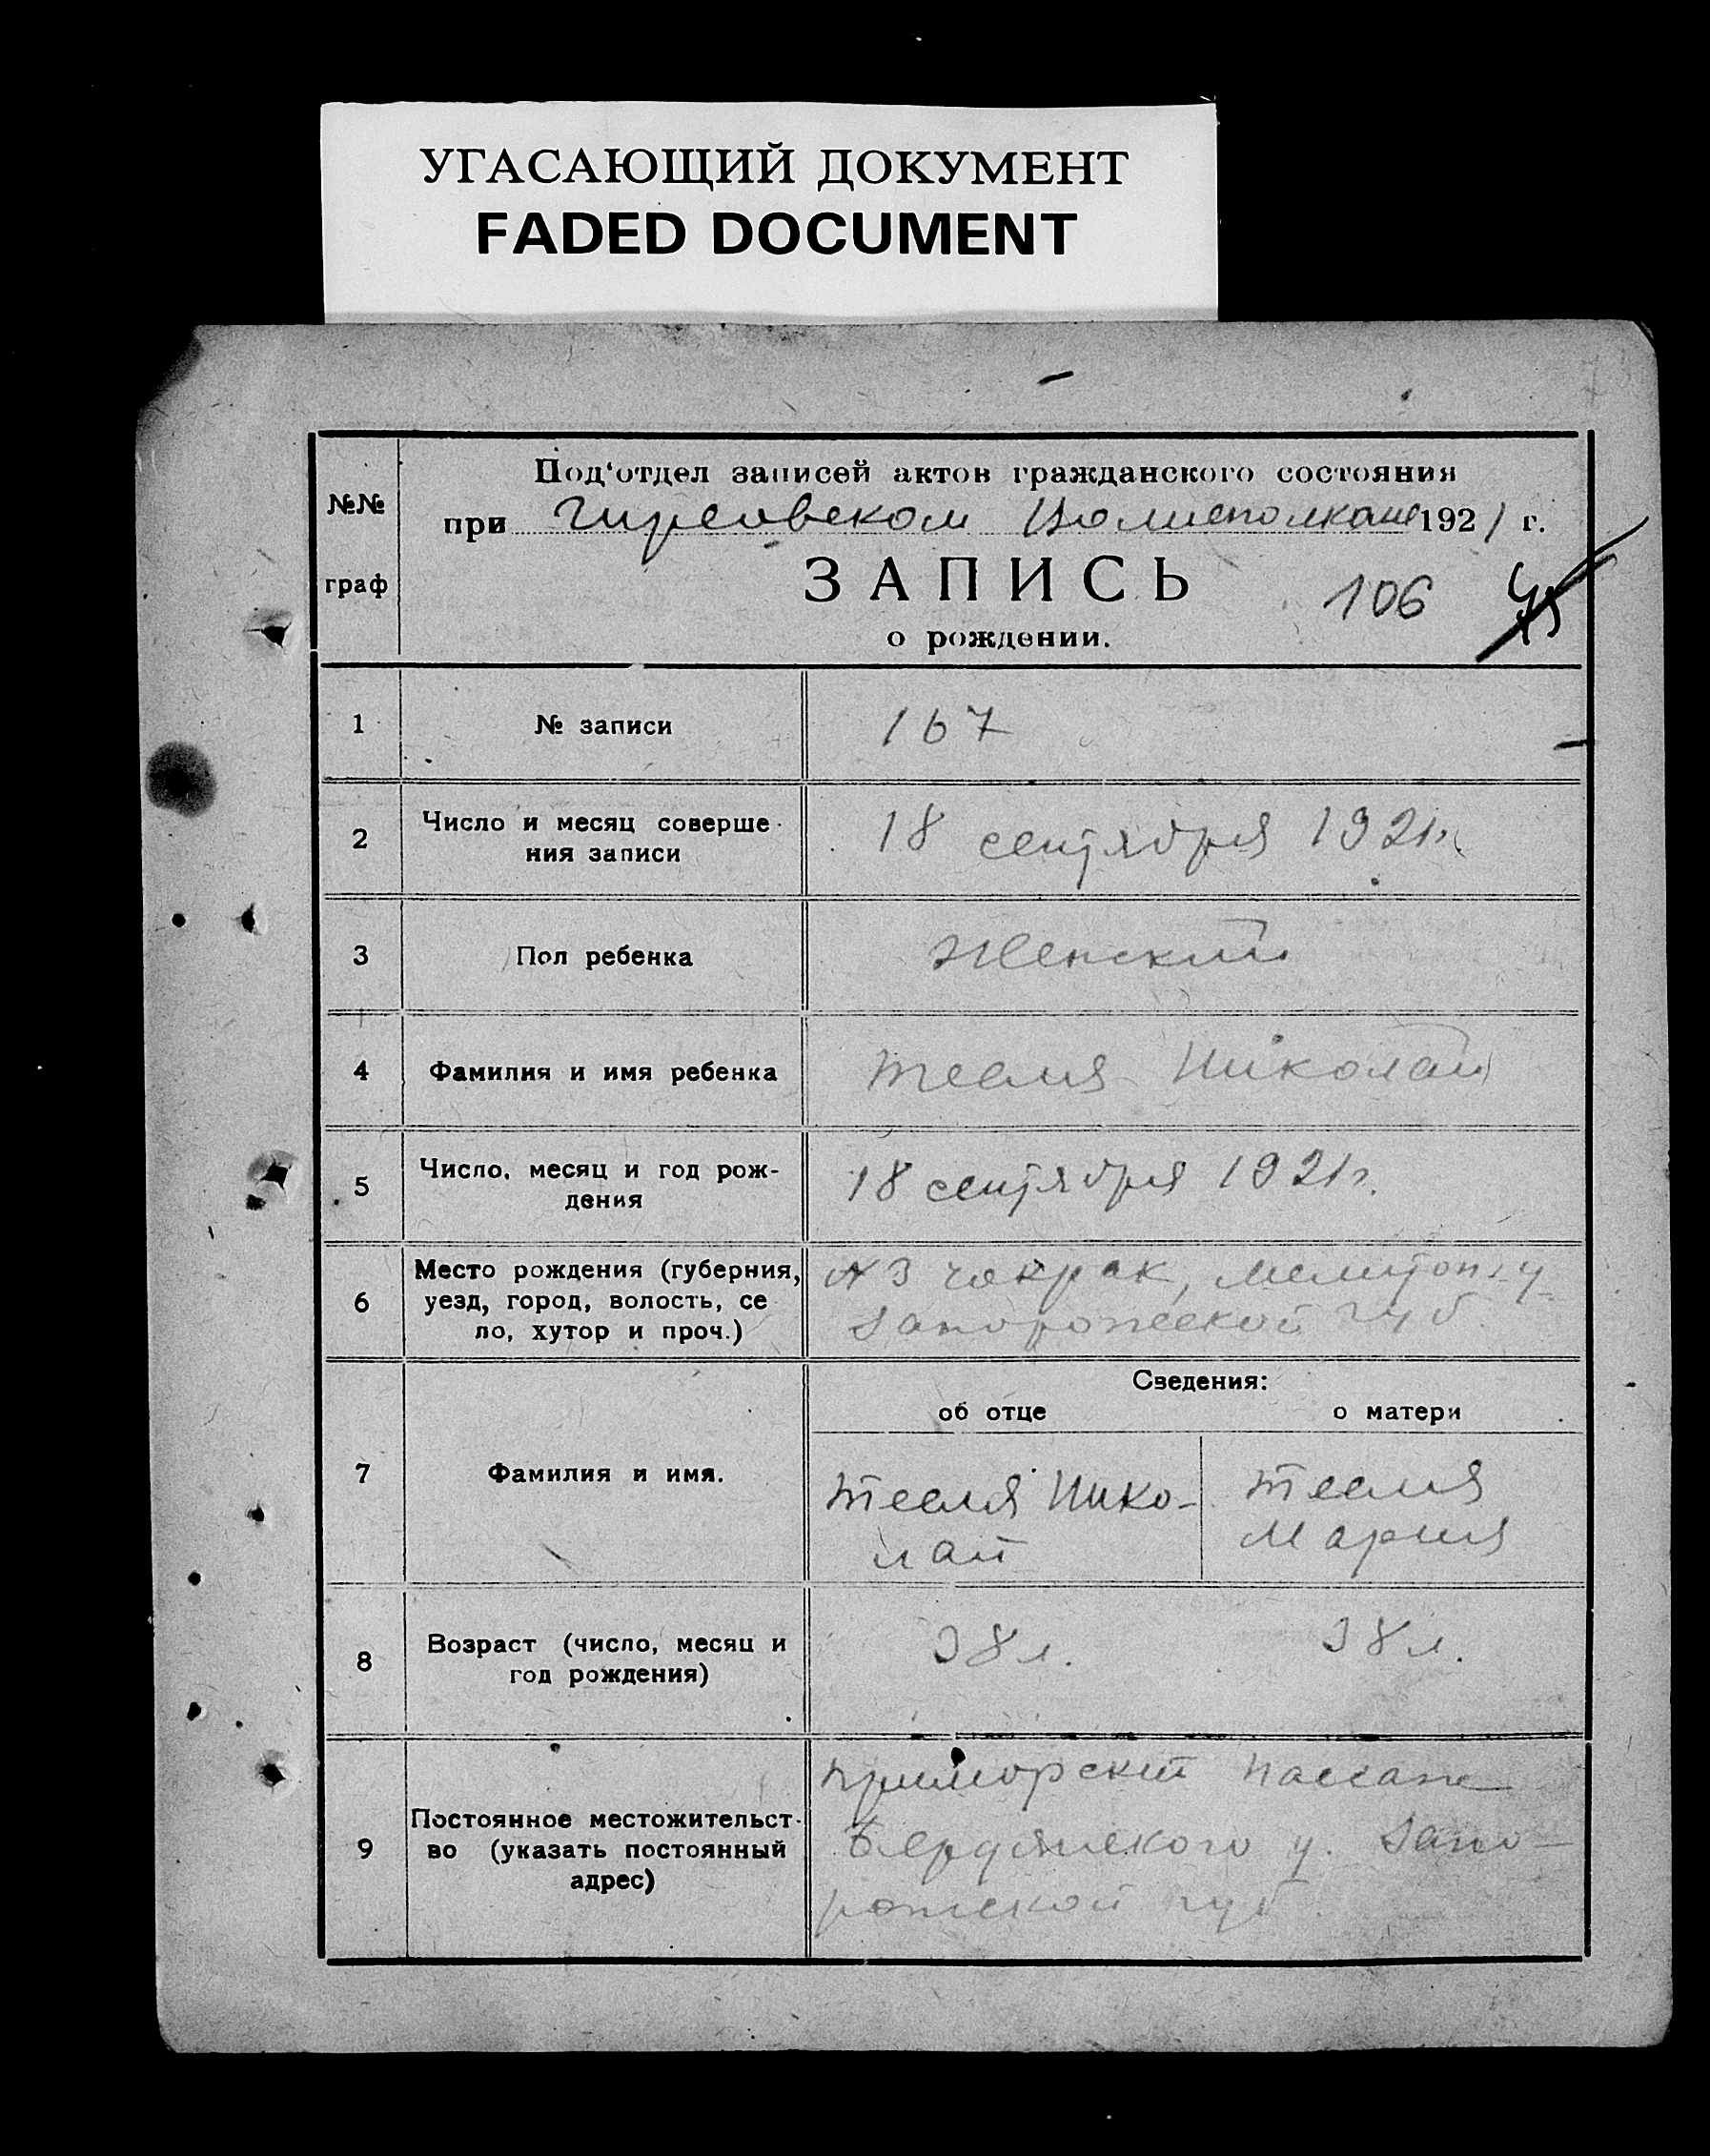 УГАСАЮЩИЙ ДОКУМЕНТ
FADED DOCUMENT
№№
граф
Под'отдел записей актов гражданского состояния
при Гирсовском Волисполкоме 1921 г.
ЗАПИСЬ
106
о рождении.
1 № записи 167
2 Число и месяц соверше-
ния записи
18 сентября 1921 г.
3 Пол ребенка Женский
4 Фамилия и имя ребенка Тесля Николай
5 Число, месяц и год рож-
дения
18 сентября 1921 г.
6 Место рождения (губерния,
уезд, город, волость, се
ло, хутор и проч.)
№ 3 Чокрак, Мелитоп. у.
Запорожской губ.
Сведения:
об отце о матери
7 Фамилия и имя.
Тесля Нико-
лай
Тесля
Мария
8 Возраст (число, месяц и
год рождения)
38 л. 38 л.
9 Постоянное местожительст-
во (указать постоянный
адрес)
Приморский Пассаж
Бердянского у. Запо-
рожской губ.